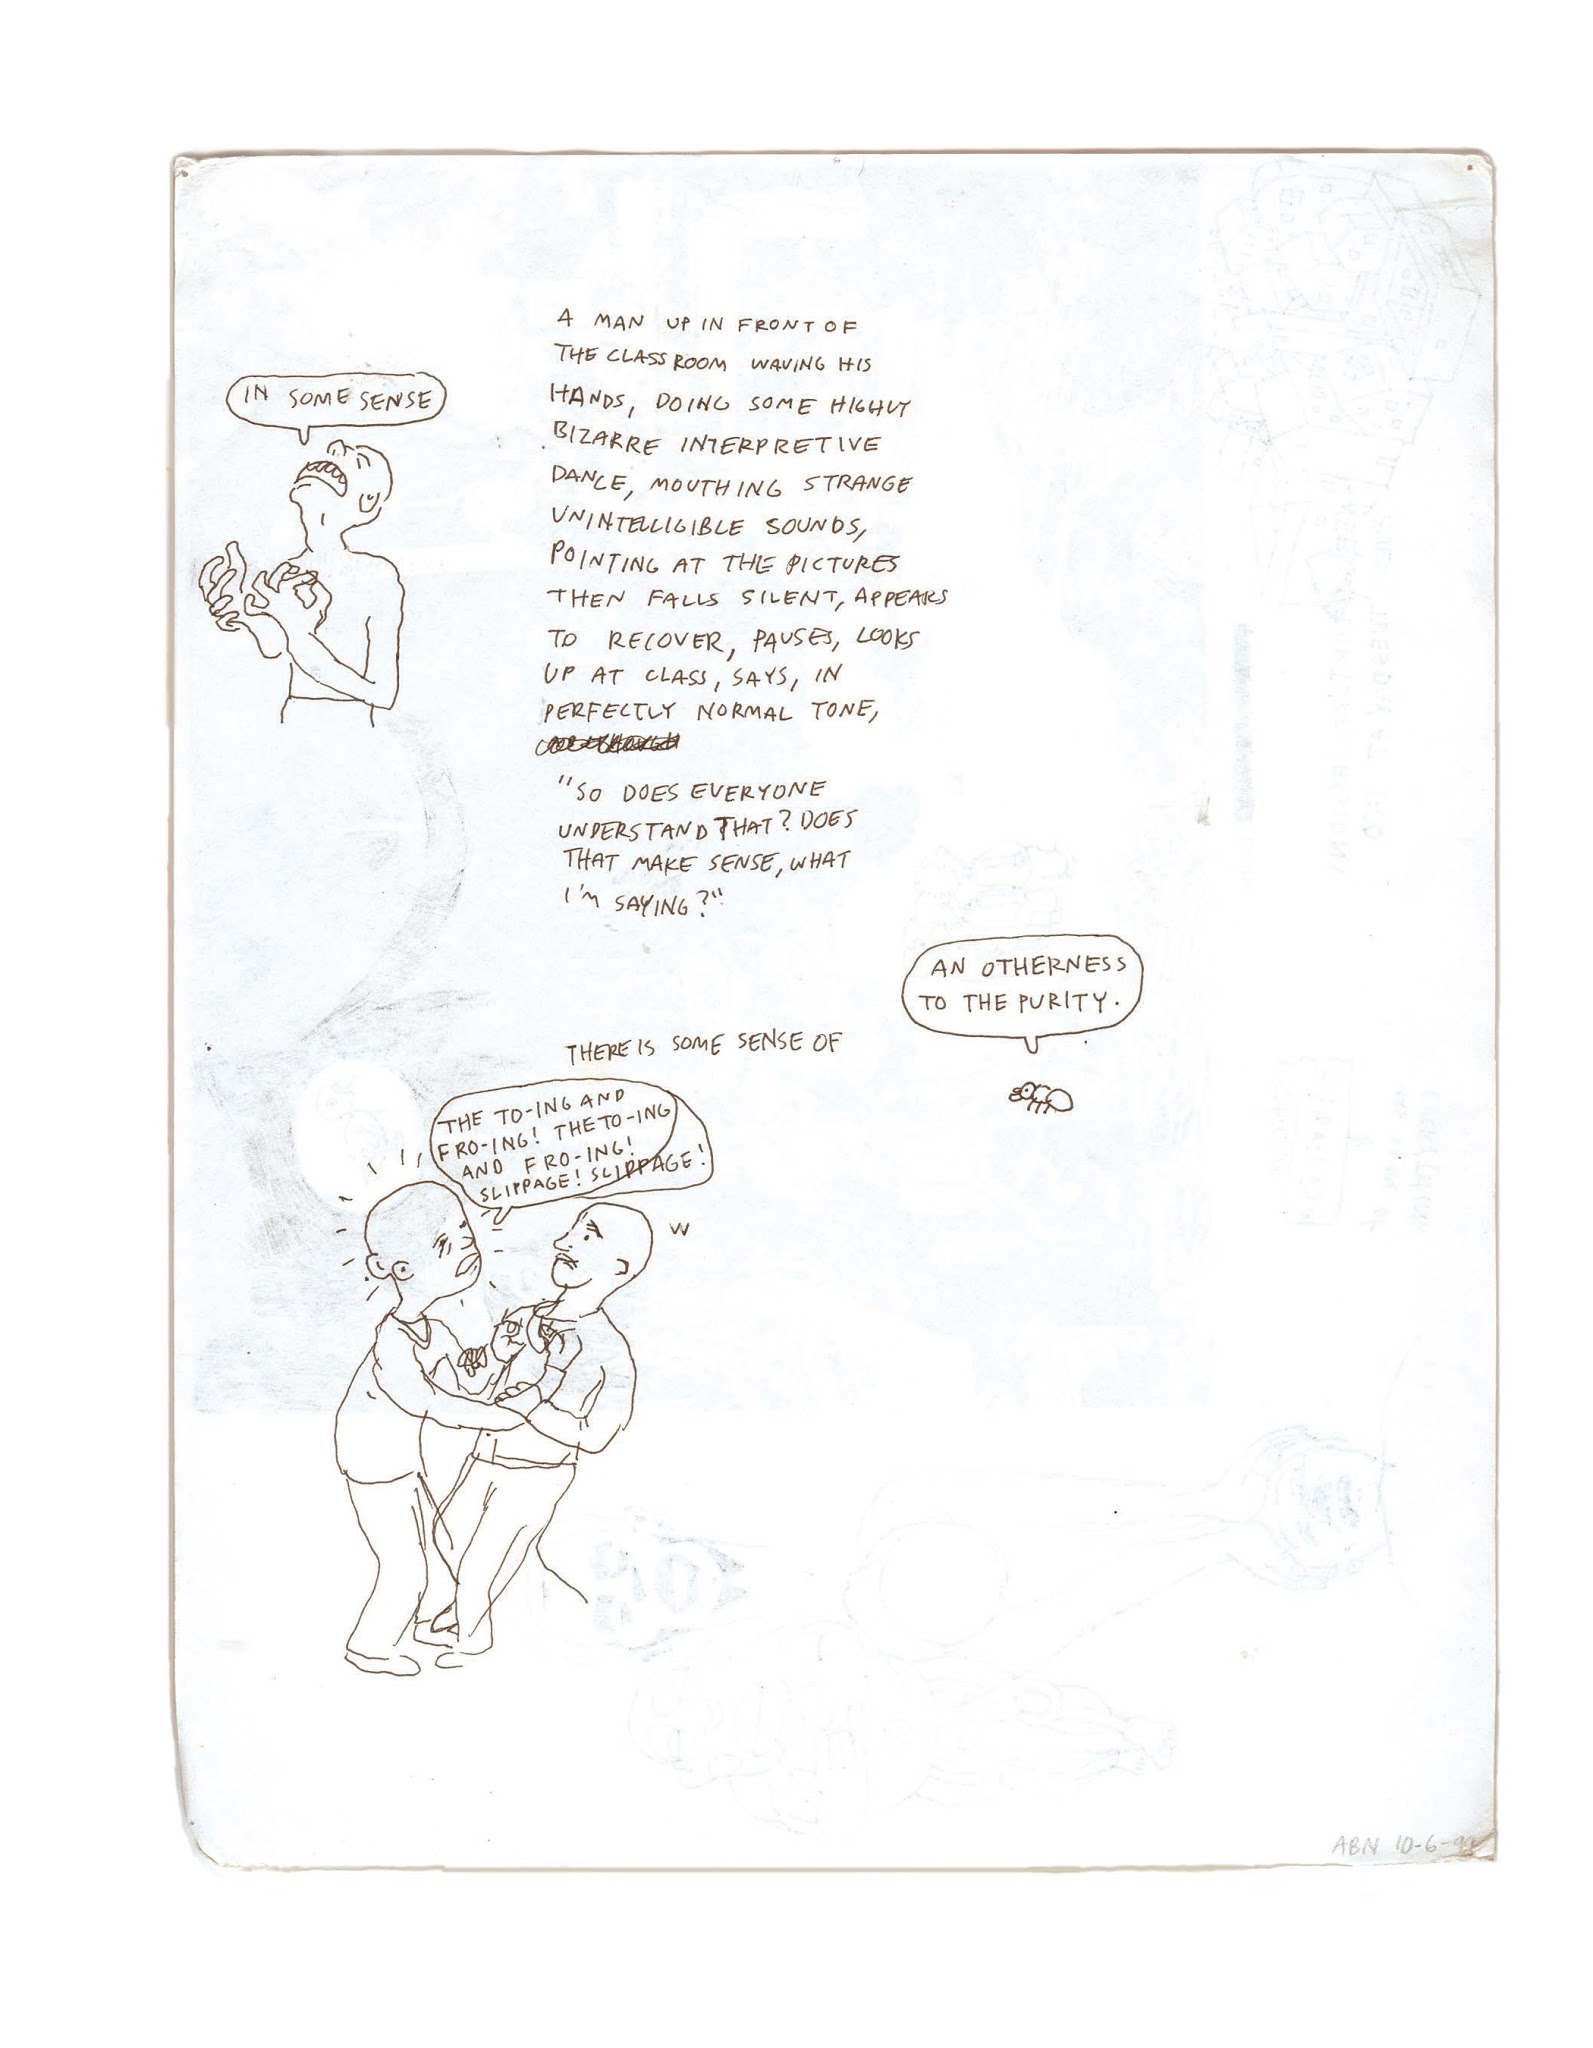 IN SOME SENSE
A MAN UP IN FRONT OF
THE CLASSROOM WAVING HIS
HANDS, DOING SOME HIGHLY
BIZARRE INTERPRETIVE
DANCE, MOUTHING STRANGE
UNINTELLIGIBLE SOUNDS,
POINTING AT THE PICTURES
THEN FALLS SILENT, APPEARS
TO RECOVER, PAUSES, LOOKS
UP AT CLASS, SAYS, IN
PERFECTLY NORMAL TONE,
"SO DOES EVERYONE
UNDERSTAND THAT? DOES
THAT MAKE SENSE, WHAT
I'M SAYING?"
THERE IS SOME SENSE OF
AN OTHERNESS
TO THE PURITY.
THE TO-ING AND
FRO-ING! THE TO-ING
AND FRO-ING!
SLIPPAGE! SLIPPAGE!
ABN 10-6-